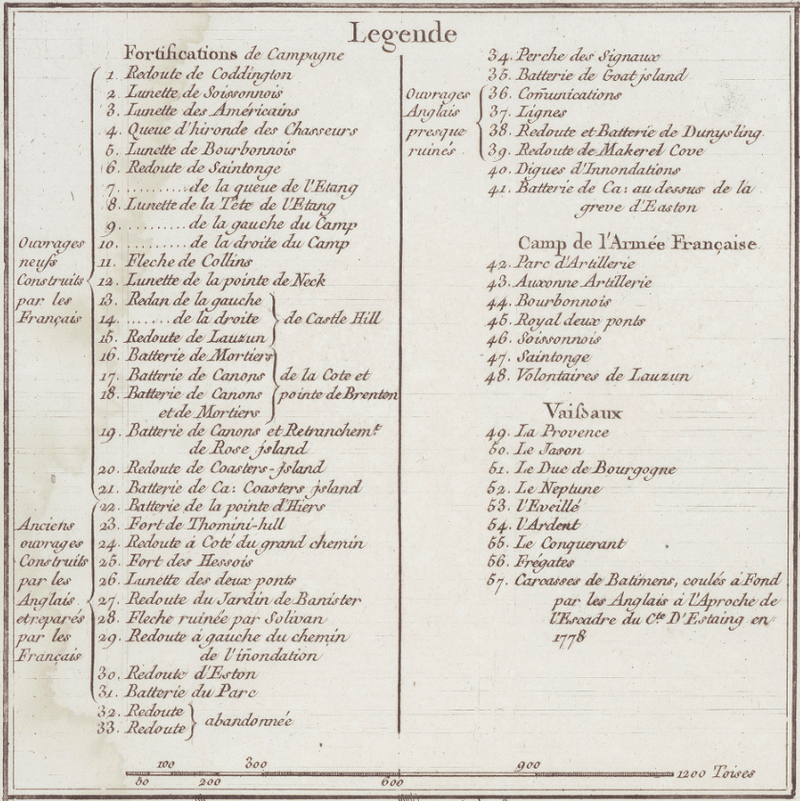 Legende
Fortifications de Campagne
Ouvrages
neufs
Construits
par les
Français
1. Redoute de Coddington
2. Lunette de Soissonnois
3. Lunette des Américains
4. Queue d'hironde des Chasseurs
5. Lunette de Bourbonnois
6. Redoute de Saintonge
7. .......... de la queue de l'Etang
8. Lunette de la Tête de l'Etang
9. .......... de la gauche du Camp
10. ........ de la droite du Camp
11. Fleche de Collins
12. Lunette de la pointe de Neck
13. Redan de la gauche
14. ....... de la droite
15. Redoute de Lauzun
de Castle Hill
16. Batterie de Mortiers
17. Batterie de Canons
18. Batterie de Canons
et de Mortiers
de la Cote et
pointe de Brenton
19. Batterie de Canons et Retranchemt.
de Rose jsland
20. Redoute de Coasters-jsland
21. Batterie de Ca: Coasters jsland
Anciens
ouvrages
Construits
par les
Anglais
et reparés
par les
Français
22. Batterie de la pointe d'Hiers
23. Fort de Thomini-hill
24. Redoute à Coté du grand chemin
25. Fort des Hessois
26. Lunette des deux ponts
27. Redoute du Jardin de Banister
28. Fleche ruinée par Solivan
29. Redoute à gauche du chemin
de l'iñondation
30. Redoute d'Eston
31. Batterie du Parc
32. Redoute
33. Redoute
abandonnée
34. Perche des Signaux
35. Batterie de Goat jsland
Ouvrages
Anglais
presque
ruinés
36. Com̃unications
37. Lignes
38. Redoute et Batterie de Dunysling
39. Redoute de Makerel Cove
40. Digues d'Innondations
41. Batterie de Ca: au dessus de la
greve d'Easton
Camp de l'Armée Française
42. Parc d'Artillerie
43. Auxonne Artillerie
44. Bourbonnois
45. Royal deux ponts
46. Soissonnois
47. Saintonge
48. Volontaires de Lauzun
Vaiſsaux
49. La Provence
50. Le Jason
51. Le Duc de Bourgogne
52. Le Neptune
53. l'Eveillé
54. l'Ardent
55. Le Conquerant
56. Frégates
57. Carcasses de Batimens, coulés à Fond
par les Anglais à l'Aproche de
l'Escadre du Cte. D'Estaing en
1778
50 100 200 300 600 900 1200 Toises